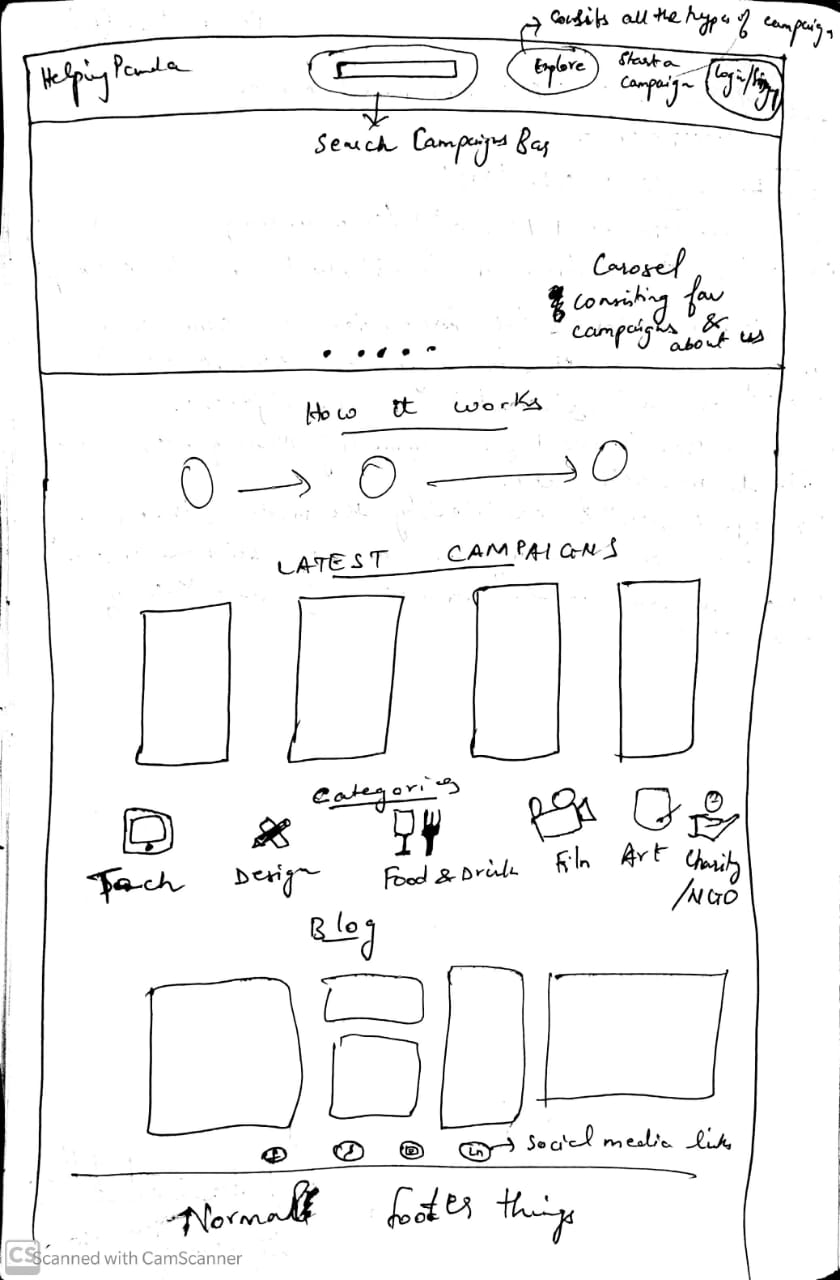 Consists all the types of campaign
Helping Panda
Explore
Start a
campaign
Login/Signup
Search Campaigns Bar
Carosel
consisting few
campaigns &
about us
How it works
LATEST CAMPAIGNS
Categories
Tech
Design
Food & Drink
Film
Art
Charity
/NGO
Blog
Ln
social media links
Normal footer things
CS
Scanned with CamScanner